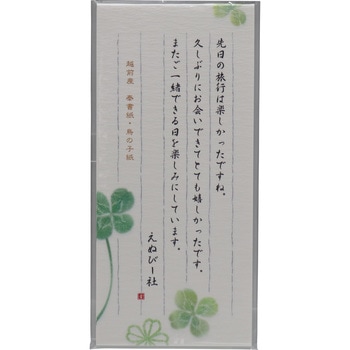 先日の旅行は楽しかったですね。
久しぶりにお会いできてとても嬉しかったです。
またご一緒できる日を楽しみにしています。
えぬびー社
越前産 奉書紙・鳥の子紙